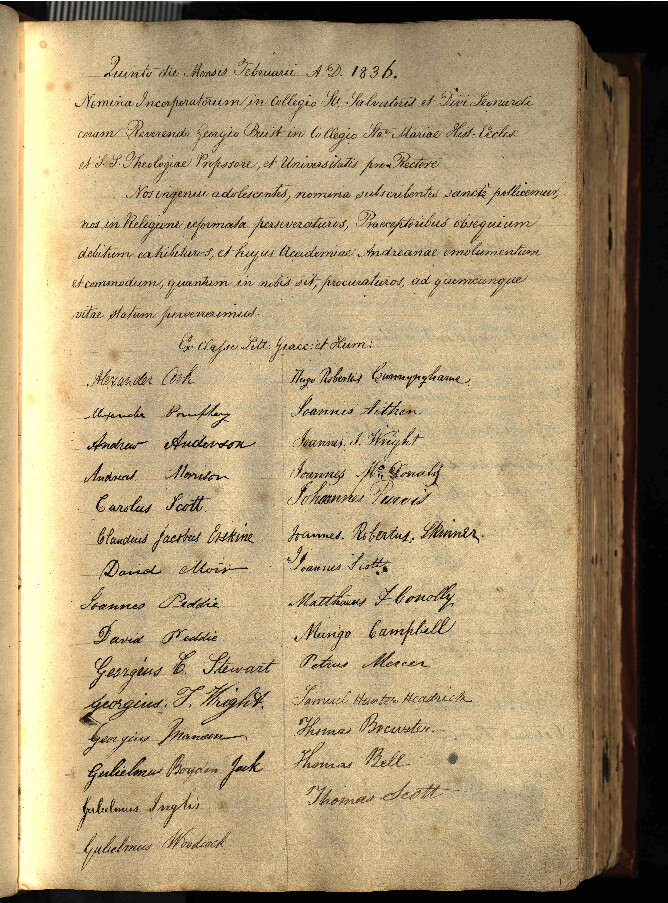 Quinto die Mensis Februarii A.D. 1836.
Nomina Incorporatorum in Collegio Sti. Salvatoris et Divi Leonardi
coram Reverendo Georgio Buist in Collegio Stae. Mariae Hist. Eccles
et S.S. Theologiae Professore, et Universitatis pro Rectore
Nos ingenui adolescentes, nomina subscribentes, sancte pollicemur,
nos in Religione reformata perseveraturos, Praeceptoribus obsequium
debitum exhibituros, et hujus Academiae Andreanae emolumentum
et commodum, quantum in nobis sit, procuraturos, ad quemcunque
vitae statum pervenerimus.
Ex Classe Litt: Graec: et Hum:
Alexander Cook
Alexander
Andrew Anderson
Andreas Morison
Carolus Scott
Claudius Jacobus Erskine
David Moir
Joannes Peddie
David Peddie
Georgius C. Stewart
Georgius. T. Wright.
Georgius
Gulielmus Boyden Jack
Gulielmus Inglis
Gulielmus Woodcock
Hugo Robertus Cunnynghame
Joannes Aitken
Joannes. S. Wright
Joannes McDonald
Johannes Purvis
Joannes. Robertus. Skinner.
Joannes Scott.
Matthaeus F Conolly
Mungo Campbell
Petrus Mercer
Samuel Hunter Headrick
Thomas Brewster
Thomas Bell
Thomas Scott